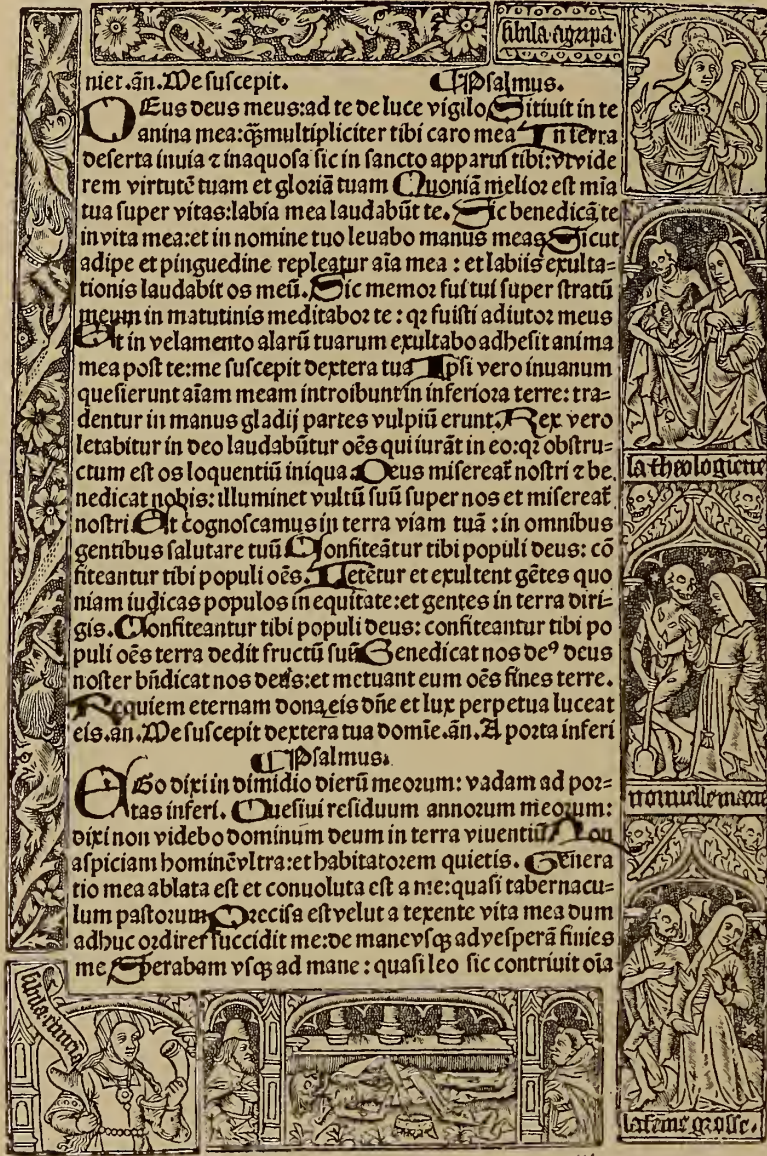 sibila agripa.
niet.añ.Me suscepit. Psalmus.
DEus deus meus:ad te de luce vigilo Sitiuit in te
anina mea:q̃multipliciter tibi caro mea In terra
deserta inuia ⁊ inaquosa sic in sancto apparui tibi:vt vide
rem virtutē tuam et gloriā tuam Quoniā melior est mīa
tua super vitas:labia mea laudabūt te. Sic benedicā te
in vita mea:et in nomine tuo leuabo manus meas Sicut
adipe et pinguedine repleatur aīa mea : et labiis exulta=
tionis laudabit os meū. Sic memor fui tui super stratū
meum in matutinis meditabor te : qꝛ fuisti adiutor meus
Et in velamento alarū tuarum exultabo adhesit anima
mea post te:me suscepit dextera tua Ipsi vero inuanum
quesierunt aīam meam introibunt in inferiora terre: tra=
dentur in manus gladij partes vulpiū erunt. Rex vero
letabitur in deo laudabūtur oēs qui iurāt in eo:qꝛ obstru=
ctum est os loquentiū iniqua Deus misereat̄ nostri ⁊ be.
nedicat nobis: illuminet vultū suū super nos et misereat̄
nostri Et cognoscamus in terra viam tuā : in omnibus
gentibus salutare tuū Confiteātur tibi populi deus: cō
fiteantur tibi populi oēs. Letētur et exultent gētes quo
niam iudicas populos in equitate:et gentes in terra diri=
gis. Confiteantur tibi populi deus: confiteantur tibi po
puli oēs terra dedit fructū suū Benedicat nos deꝰ deus
noster bn̄dicat nos deus:et metuant eum oēs fines terre.
Requiem eternam dona eis dn̄e et lux perpetua luceat
eis.añ.Me suscepit dextera tua domīe.añ.A porta inferi
Psalmus.
EGo dixi in dimidio dierū meorum: vadam ad por=
tas inferi. Quesiui residuum annorum meorum:
dixi non videbo dominum deum in terra viuentiū Non
aspiciam hominē vltra:et habitatorem quietis. Genera
tio mea ablata est et conuoluta est a me:quasi tabernacu=
lum pastorum Precisa est velut a texente vita mea dum
adhuc ordiret̄ succidit me:de mane vsqꝫ ad vesperā finies
me Sperabam vsqꝫ ad mane : quasi leo sic contriuit oīa
la theologiene
nouuelle mariee
la feme grosse.